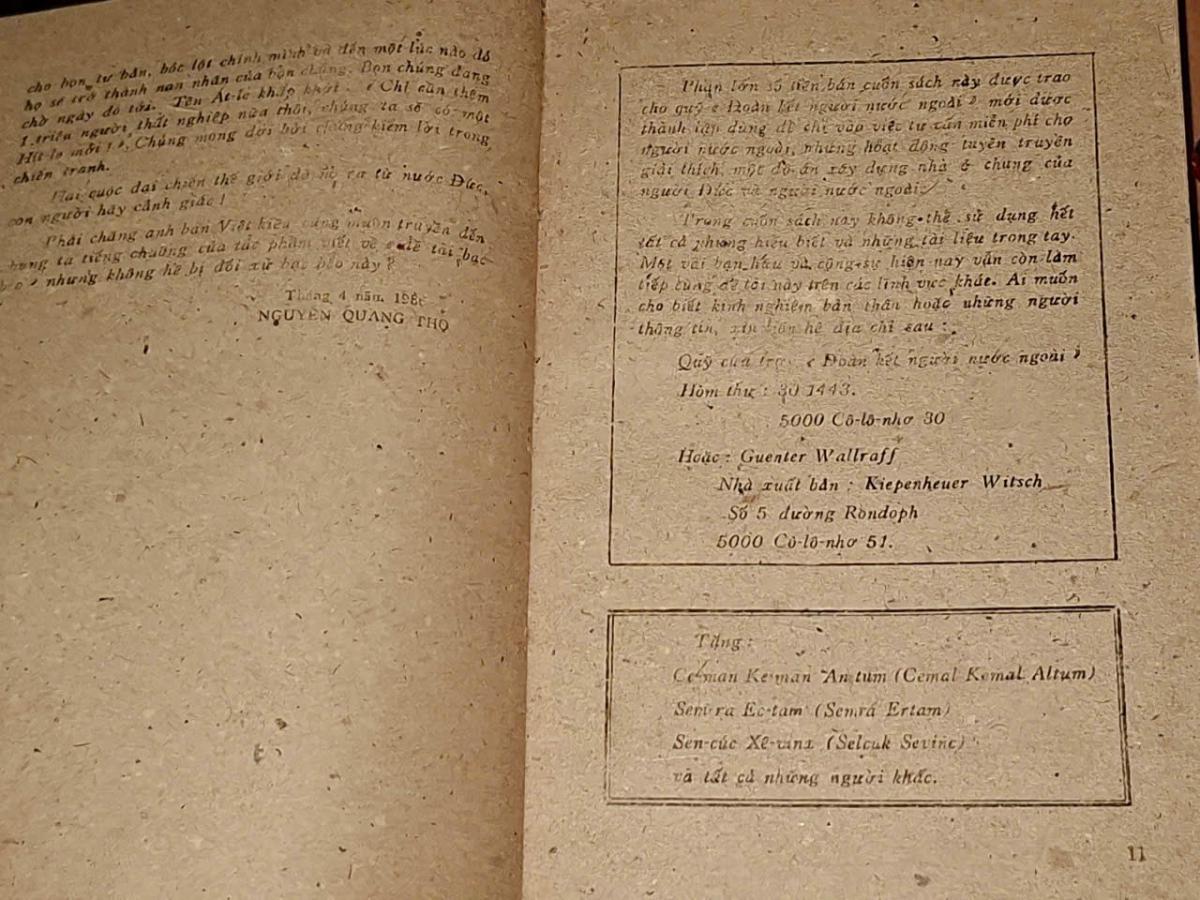 cho bọn tư bản, bóc lột chính mình và đến một lúc nào đó
họ sẽ trở thành nạn nhân của bọn chúng. Bọn chúng đang
chờ ngày đó tới. Tên Át-le khấp khởi : « Chỉ cần thêm
1 triệu người thất nghiệp nữa thôi, chúng ta sẽ có một
Hít-le mới ! ». Chúng mong đợi bởi chúng kiếm lời trong
chiến tranh.
Hai cuộc đại chiến thế giới đã nổ ra từ nước Đức,
con người hãy cảnh giác !
Phải chăng anh bạn Việt kiều cũng muốn truyền đến
chúng ta tiếng chuông của tác phẩm viết về « đề tài bạc
bẽo » nhưng không hề bị đối xử bạc bẽo này ?
Tháng 4 năm
NGUYỄN QUANG THỌ
Phần lớn số tiền bán cuốn sách này được trao
cho quỹ « Đoàn kết người nước ngoài » mới được
thành lập dùng để chi vào việc tư vấn miễn phí cho
người nước ngoài, những hoạt động tuyên truyền
giải thích, một đồ án xây dựng nhà ở chung của
người Đức và người nước ngoài.
Trong cuốn sách này không thể sử dụng hết
tất cả những hiểu biết và những tài liệu trong tay.
Một vài bạn hữu và cộng sự hiện nay vẫn còn làm
tiếp cùng đề tài này trên các lĩnh vực khác. Ai muốn
cho biết kinh nghiệm bản thân hoặc những người
thông tin, xin liên hệ địa chỉ sau :
Quỹ cứu trợ « Đoàn kết người nước ngoài »
Hòm thư : 30 1443.
5000 Cô-lô-nhơ 30
Hoặc : Guenter Wallraff
Nhà xuất bản : Kiepenheuer Witsch
Số 5 đường Rondoph
5000 Cô-lô-nhơ 51.
Tặng :
Ke-man An-tum (Cemal Kemal Altum)
Sem-ra Ec-tam (Semrá Ertam)
Sen-cúc Xê-vinx (Selcuk Sevinc)
và tất cả những người khác.
11